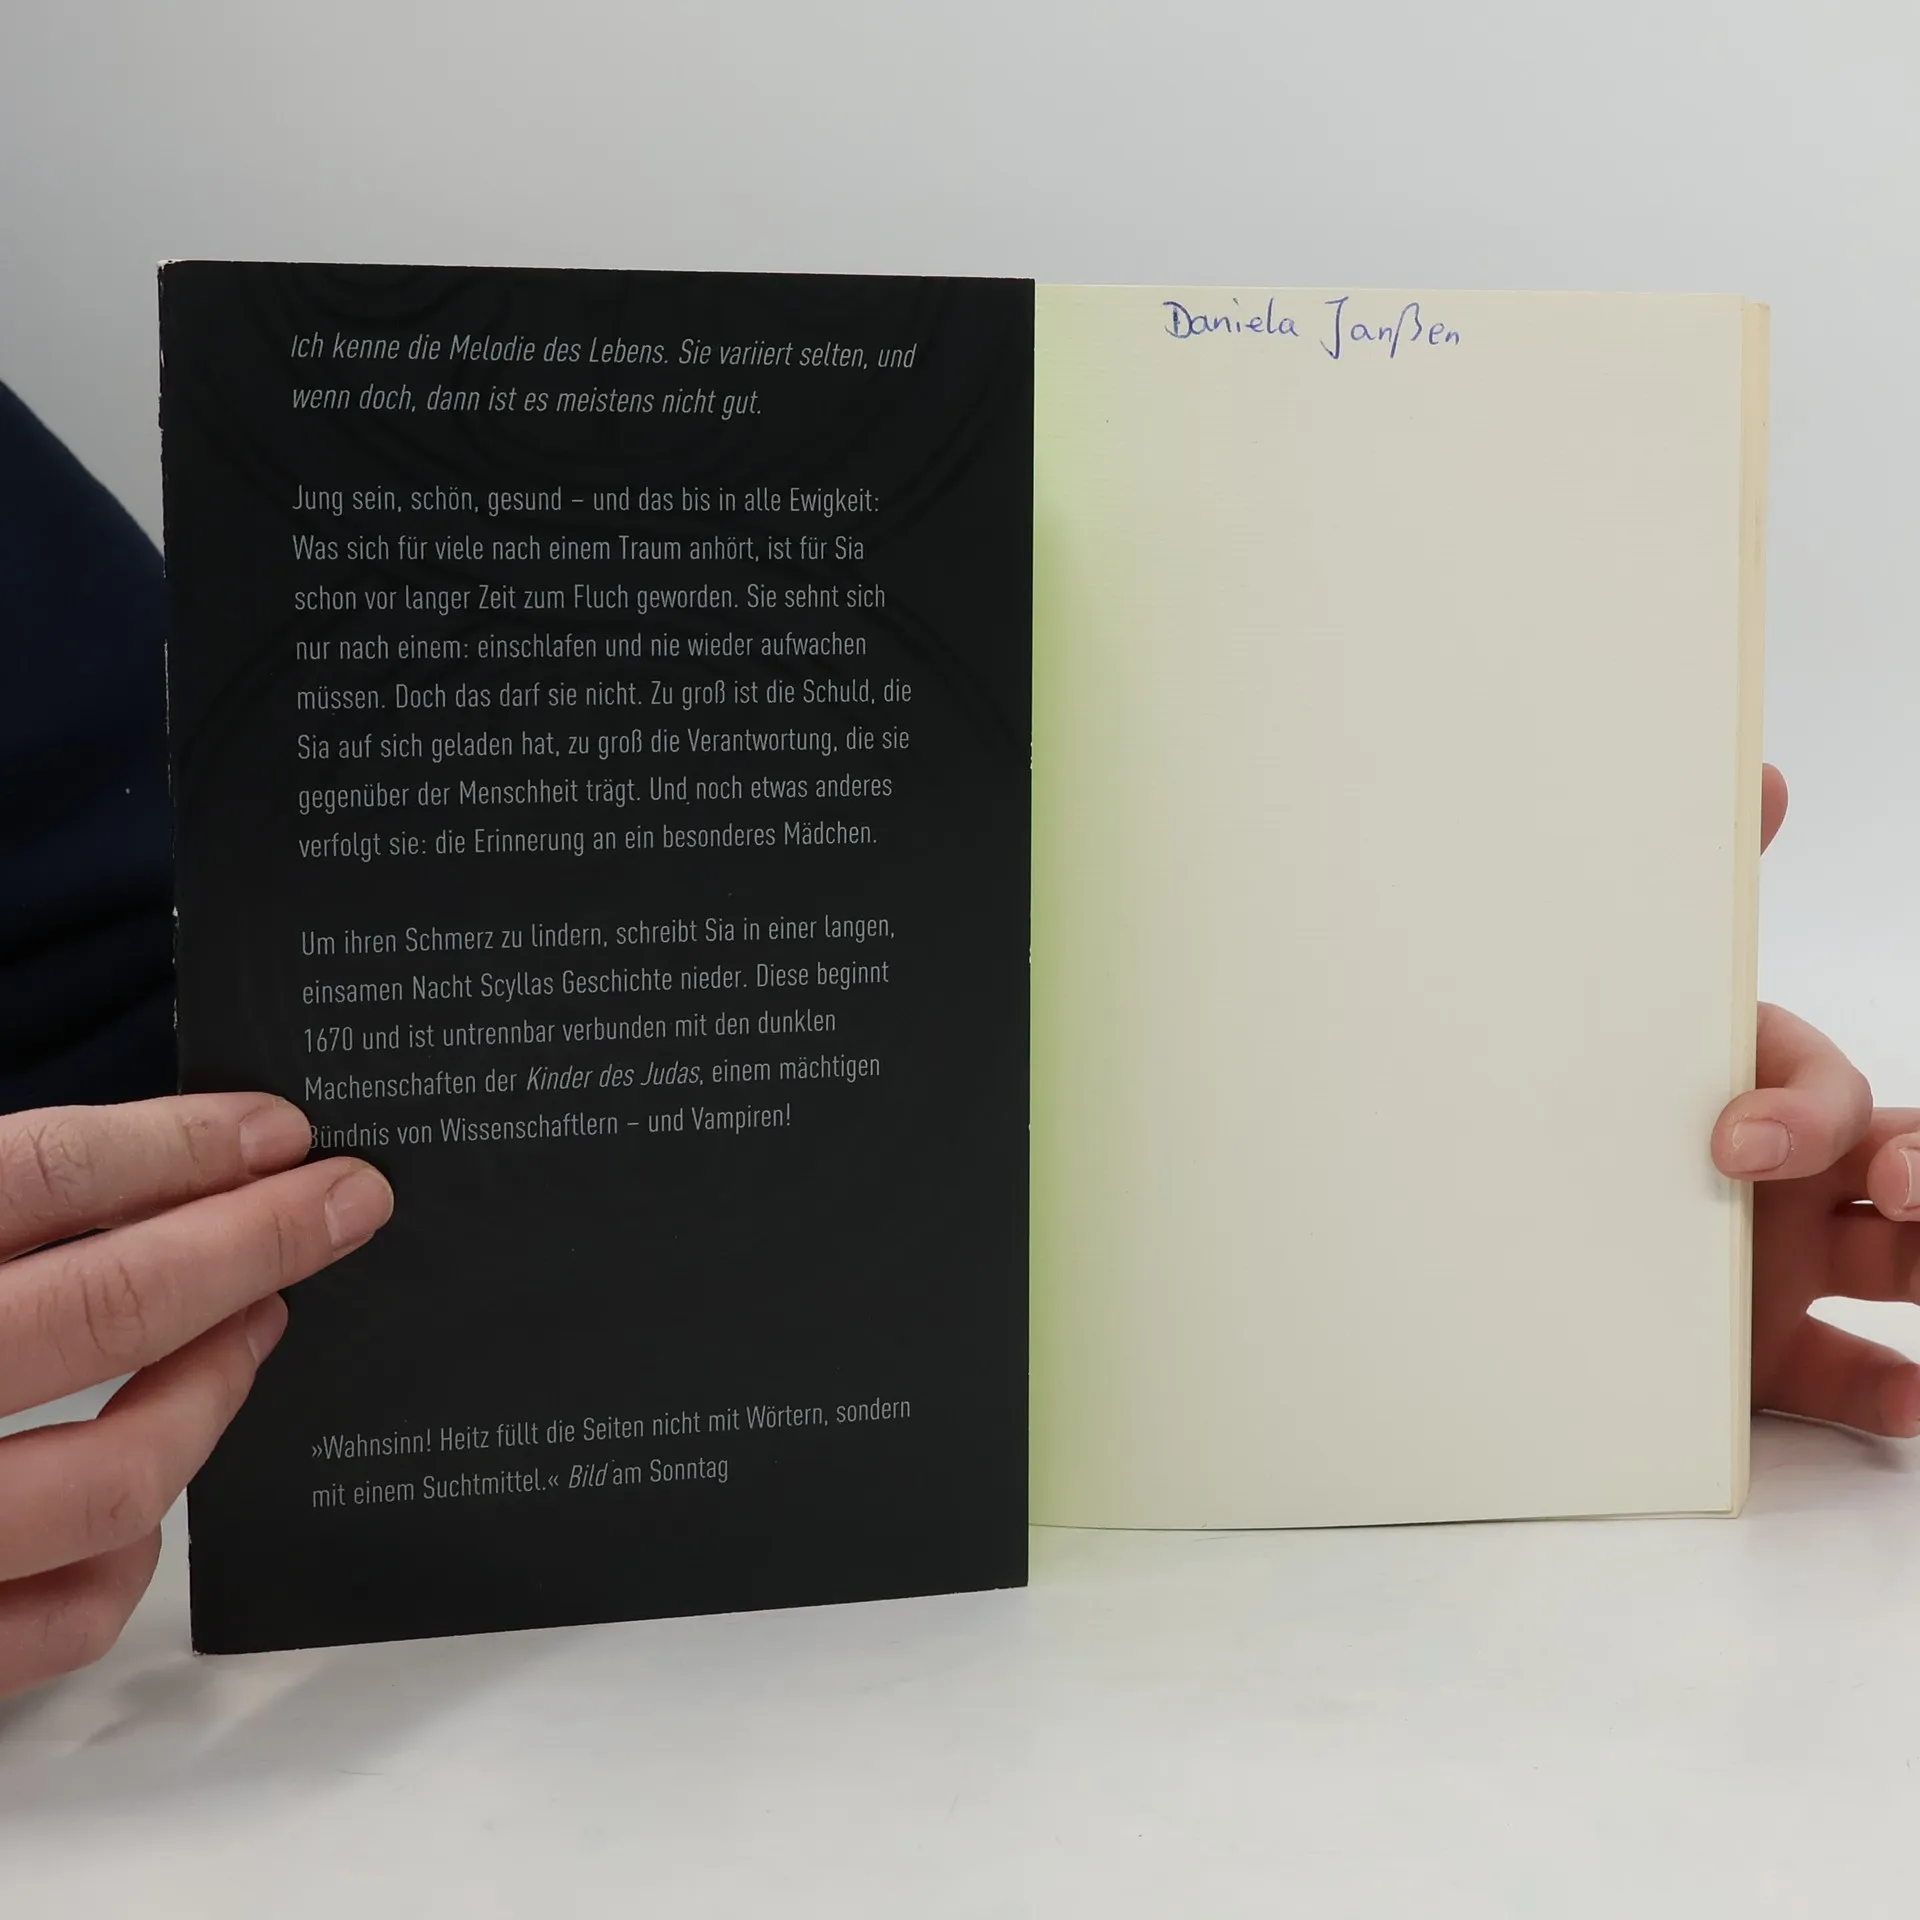 Ich kenne die Melodie des Lebens. Sie variiert selten, und
wenn doch, dann ist es meistens nicht gut.
Jung sein, schön, gesund – und das bis in alle Ewigkeit:
Was sich für viele nach einem Traum anhört, ist für Sia
schon vor langer Zeit zum Fluch geworden. Sie sehnt sich
nur nach einem: einschlafen und nie wieder aufwachen
müssen. Doch das darf sie nicht. Zu groß ist die Schuld, die
Sia auf sich geladen hat, zu groß die Verantwortung, die sie
gegenüber der Menschheit trägt. Und noch etwas anderes
verfolgt sie: die Erinnerung an ein besonderes Mädchen.
Um ihren Schmerz zu lindern, schreibt Sia in einer langen,
einsamen Nacht Scyllas Geschichte nieder. Diese beginnt
1670 und ist untrennbar verbunden mit den dunklen
Machenschaften der Kinder des Judas, einem mächtigen
Bündnis von Wissenschaftlern – und Vampiren!
»Wahnsinn! Heitz füllt die Seiten nicht mit Wörtern, sondern
mit einem Suchtmittel.« Bild am Sonntag
Daniela Janßen